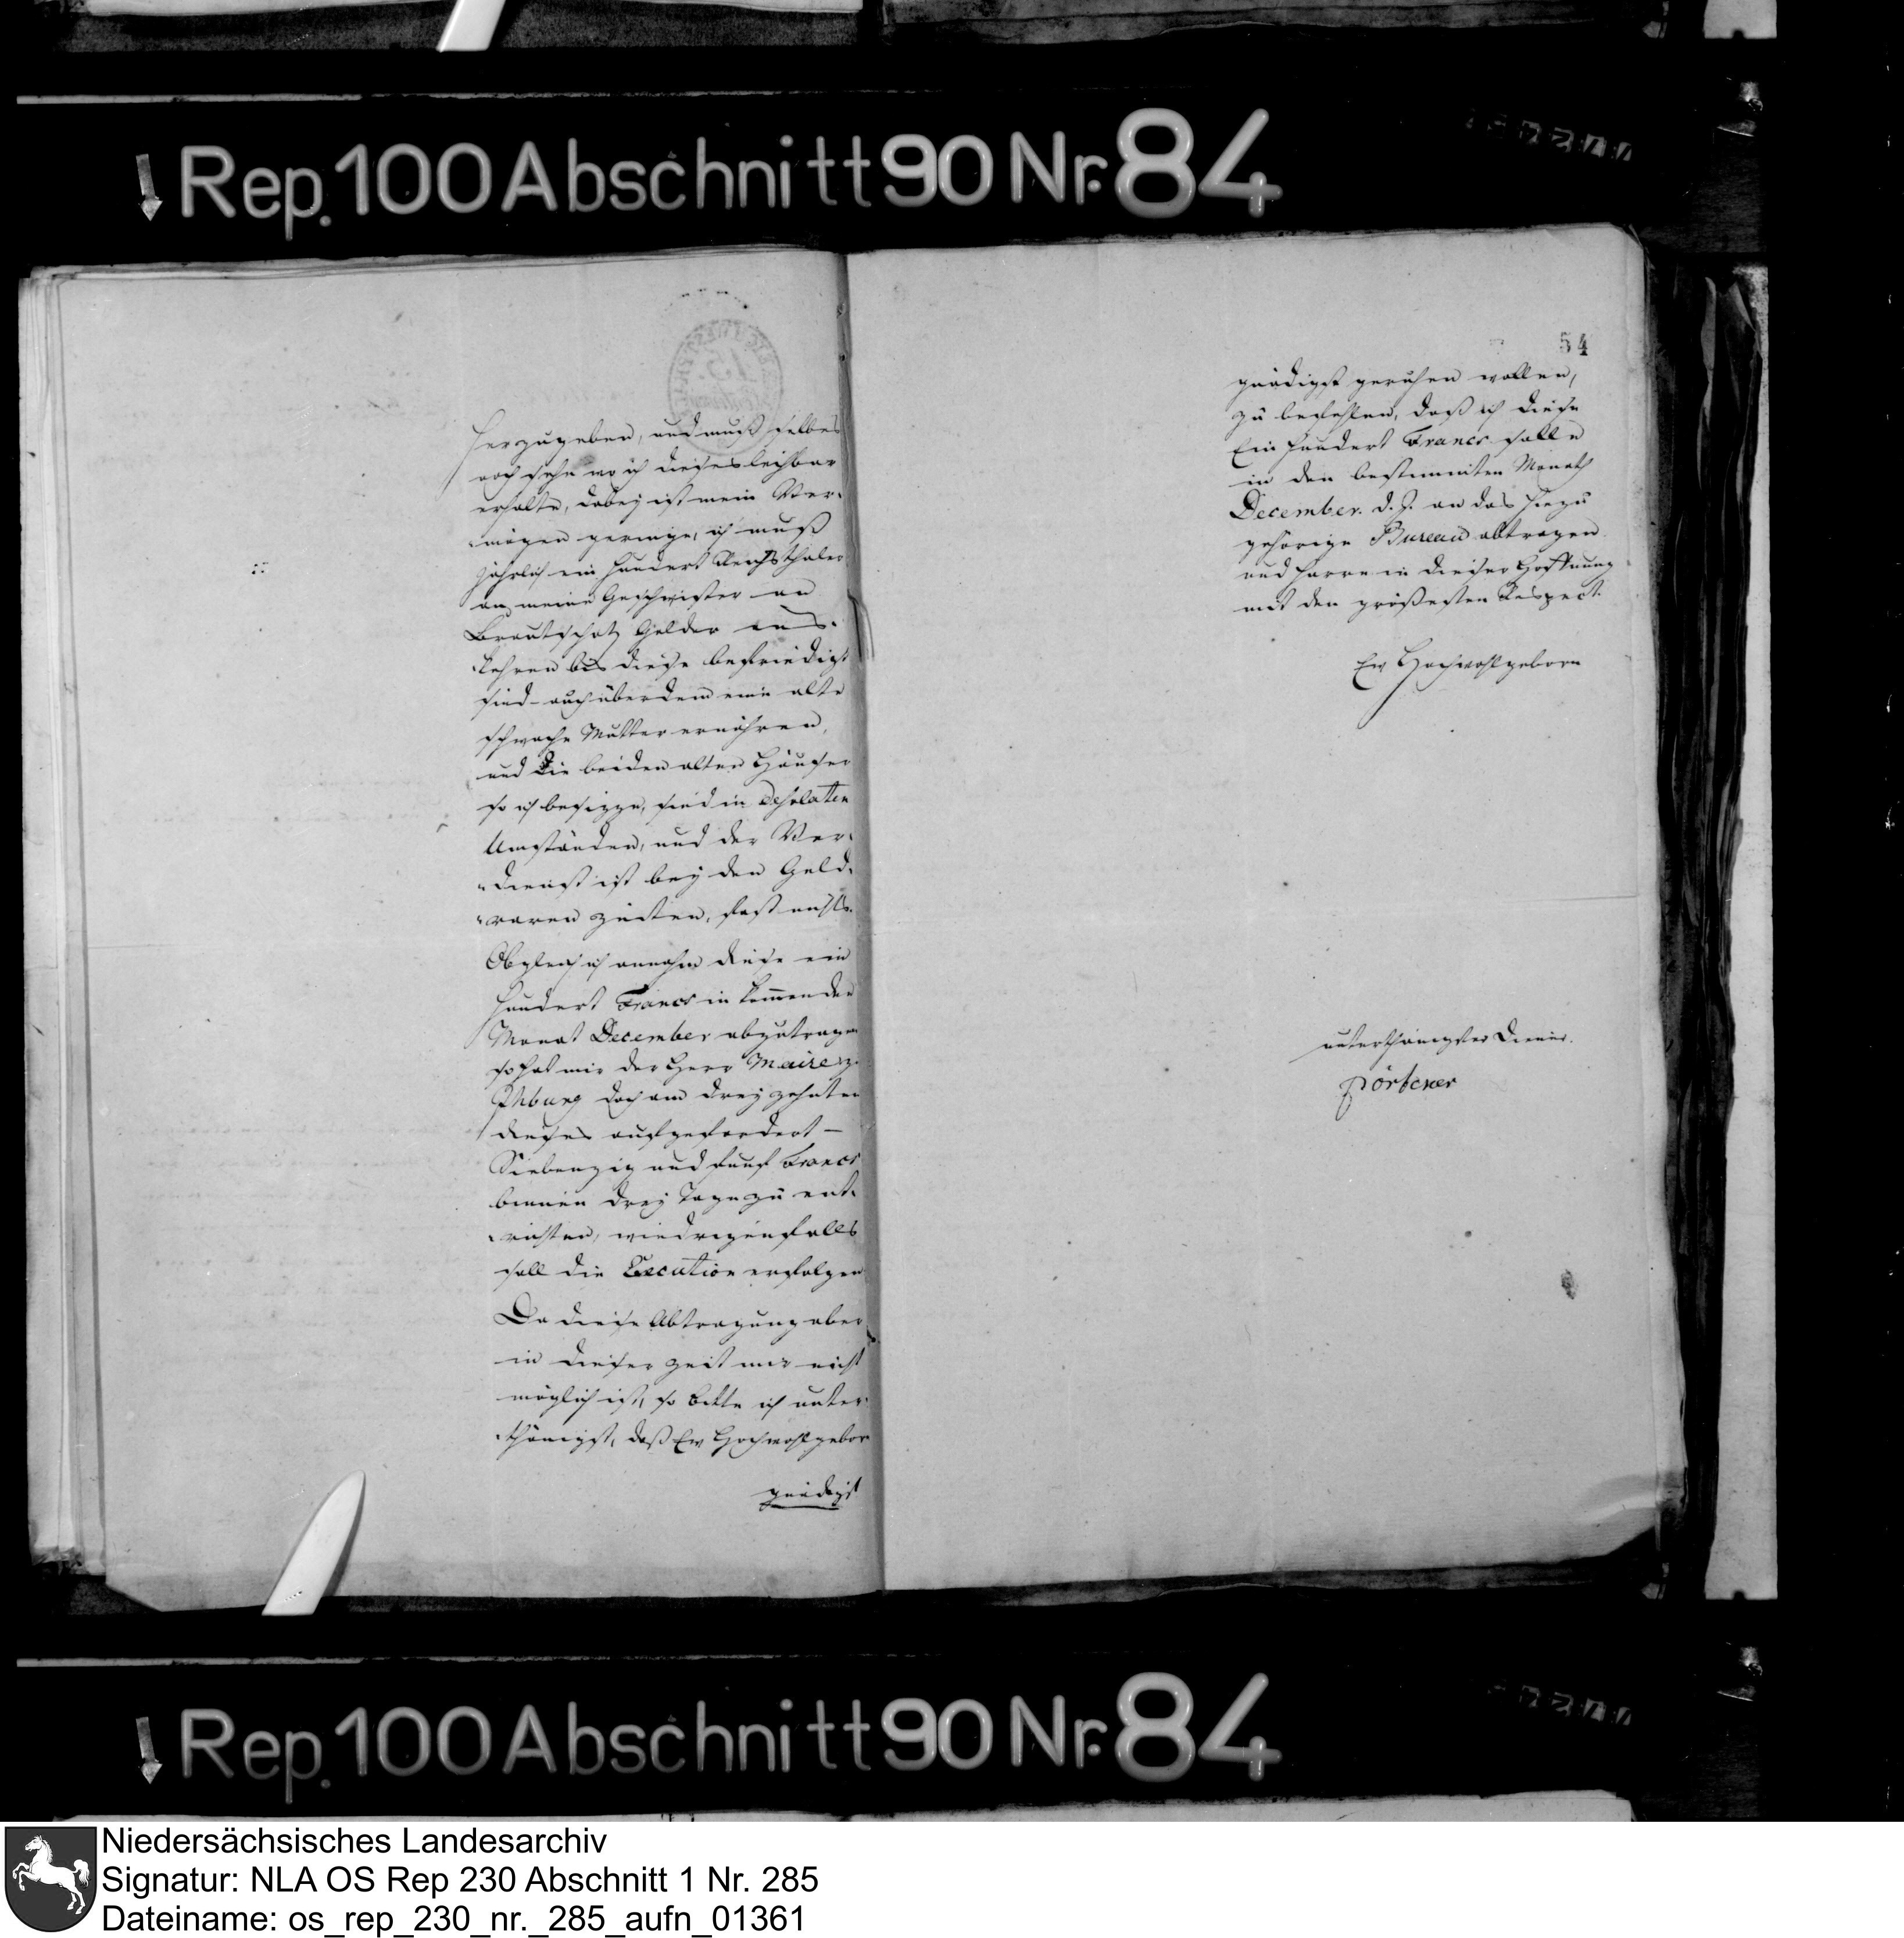 Rep. 100 Abschnitt 90 Nr. 84
herzugeben, und muß selbes
noch sehn wo ich dieses leihbar
erhalte, dabey ist mein Ver-
mögen geringe, ich muß
jährlich ein hundert Reichsthaler
an meine Geschwister an
Brautschatz Gelder aus-
kehren bis diese befriedigt
sind - auch überdem eine alte
schwache Mutter ernähren,
und die beiden alten Häuser
so ich besizze, sind in desolaten
Umständen, und der Ver-
dienst ist bey den Geld-
raren zeiten, fast nichts.
Obgleich ich annahm diese ein
hundert Francs in kommenden
Monat December abzutragen
so hat mir der Herr Maire z.
Iburg doch am dreyzehnten
dieses aufgefordert —
Siebenzig und fünf Francs
binnen drey Tage zu ent-
richten, wiedrigenfalls
soll die Execution erfolgen
Da diese Abtragung aber
in dieser zeit mir nicht
möglich ist, so bitte ich unter-
thänigst, daß Ew Hochwohlgebor
gnädigst
54
gnädigst geruhen wollen,
zu befehlen, daß ich diese
Ein hundert Francs solle
in den bestimmten Monath
December. d. J. an das hiezu
gehörige Bureau abtragen
und harre in dieser Hoffnung
mit den größesten Respect.
Ew Hochwohlgeborn
unterthänigster Diener.
Pörtener
Rep. 100 Abschnitt 90 Nr. 84
Niedersächsisches Landesarchiv
Signatur: NLA OS Rep 230 Abschnitt 1 Nr. 285
Dateiname: os_rep_230_nr._285_aufn_01361